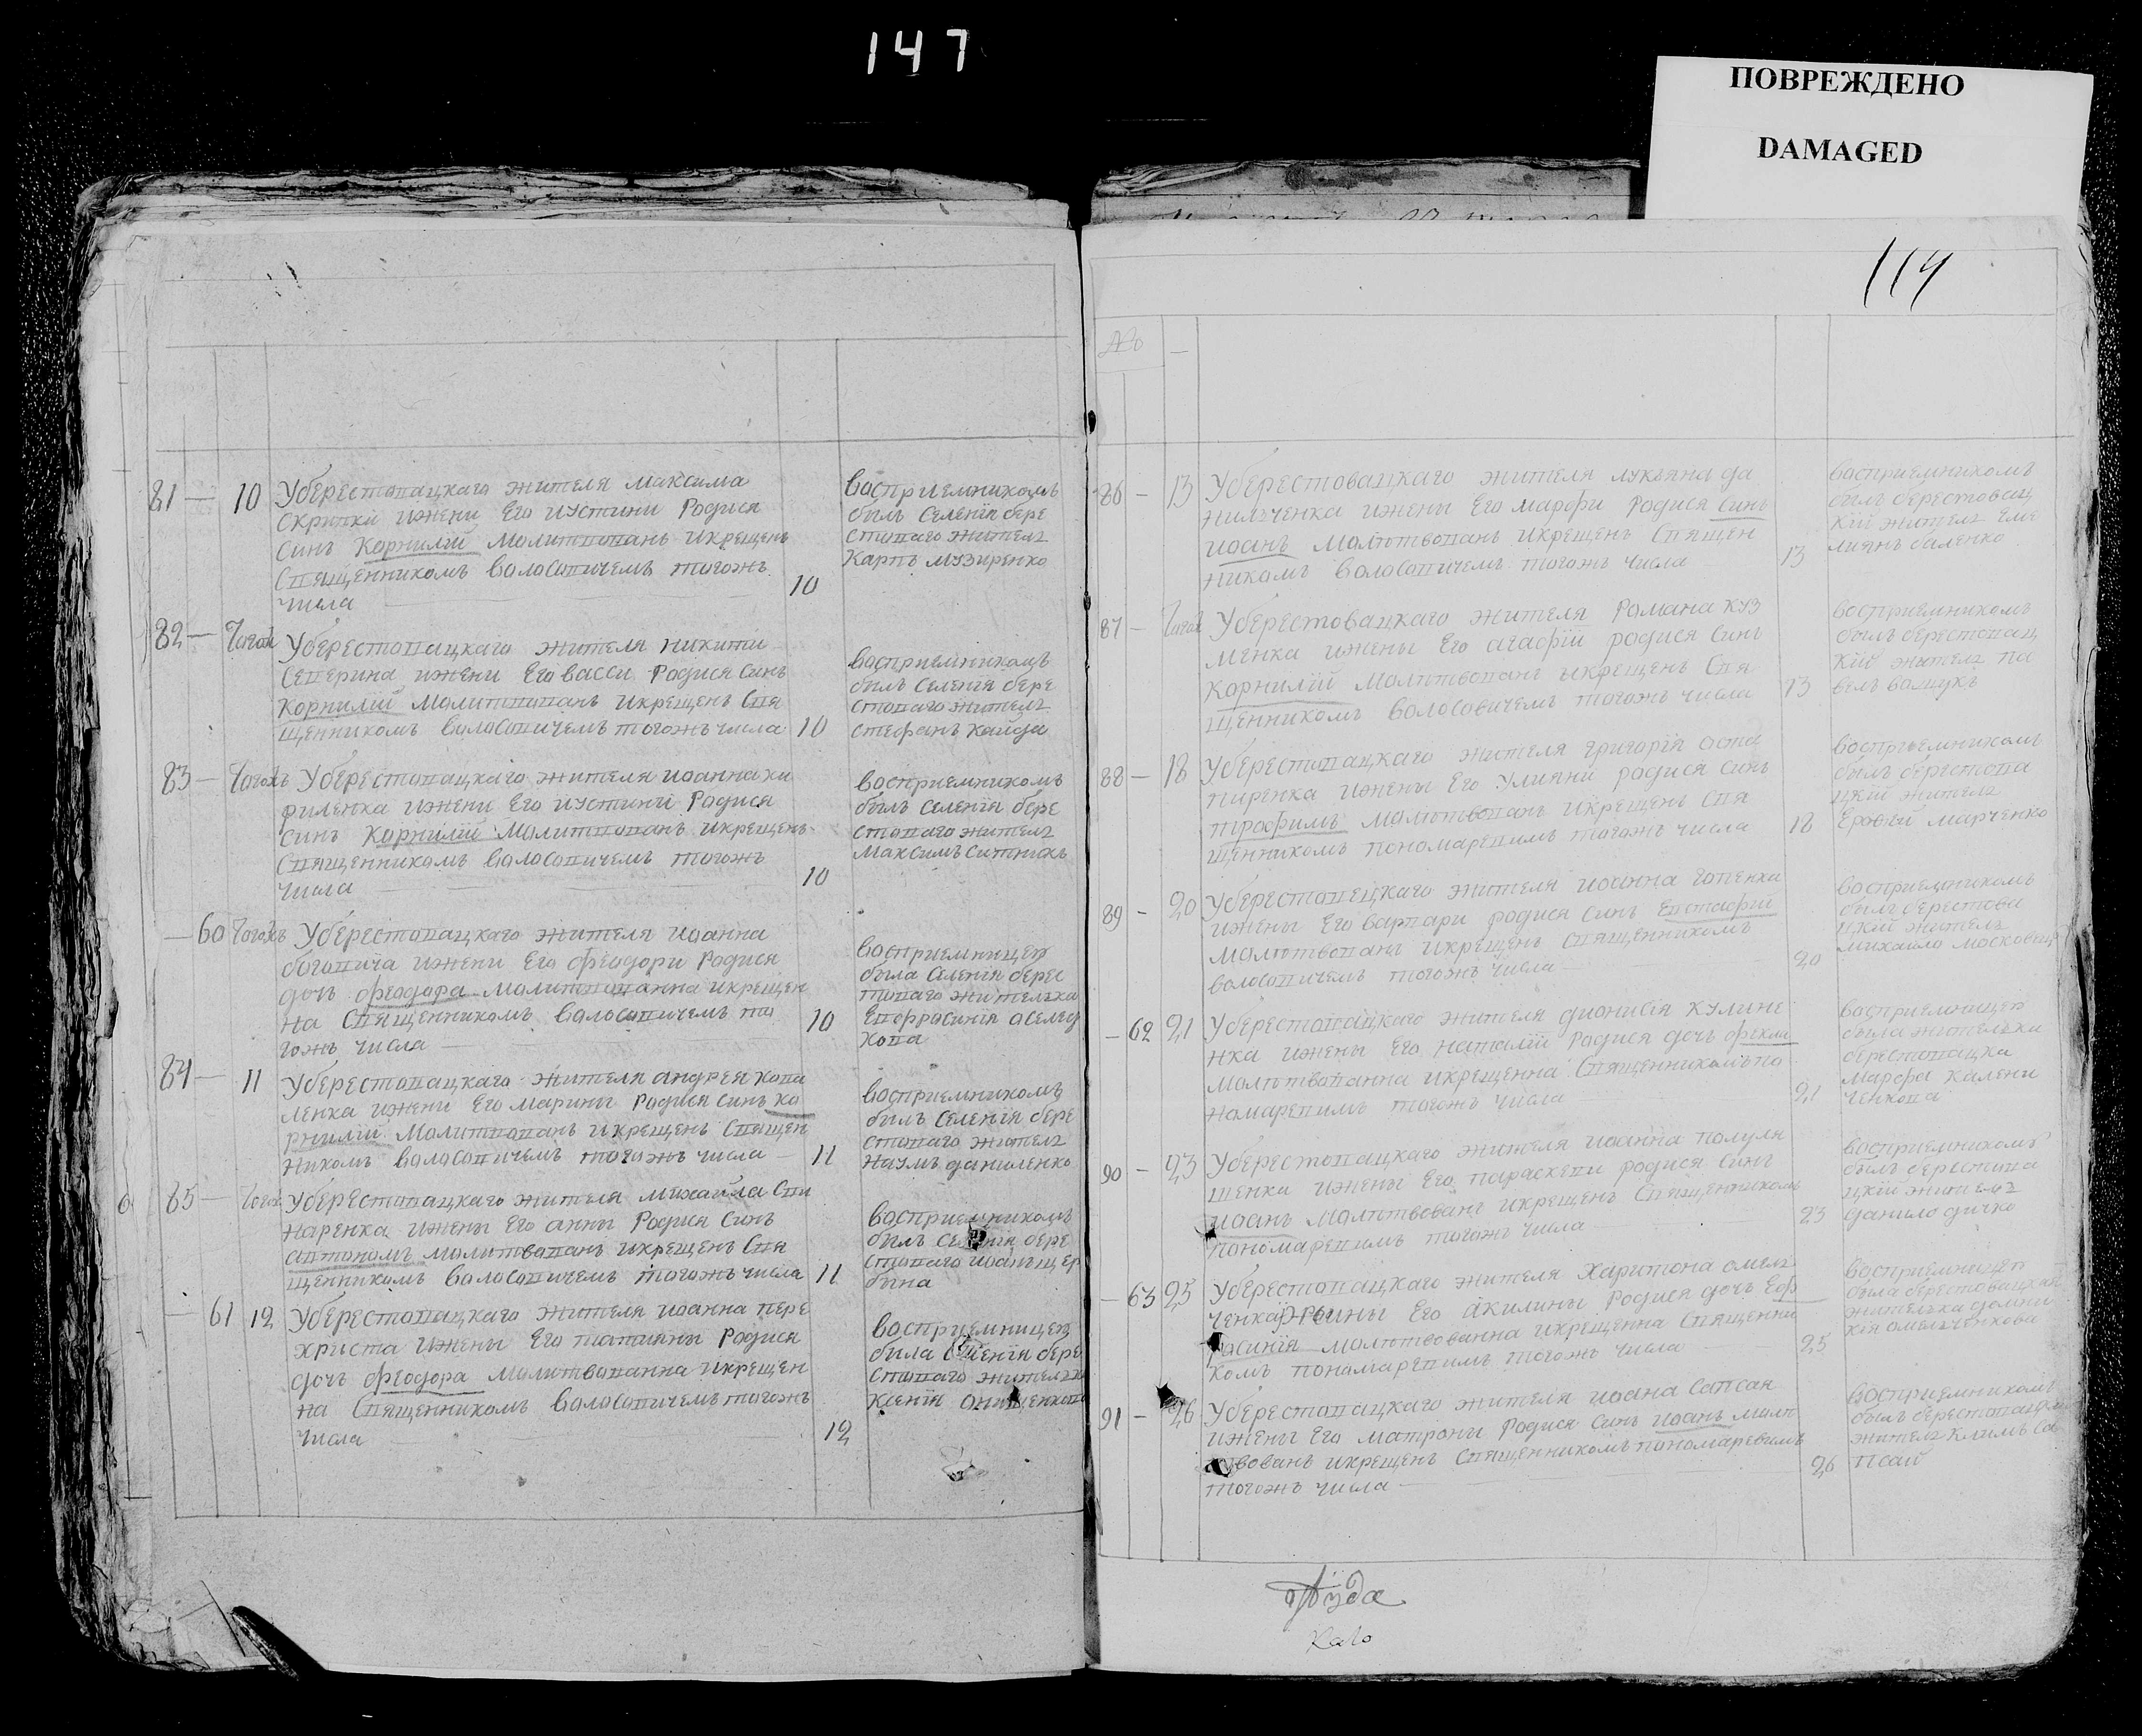 147
ПОВРЕЖДЕНО
DAMAGED
114
81 — 10 Уберестовацкаго жителя максима
скрипки ижени Его иустини Родися
синъ Корнилїй Молитвованъ икрещенъ
Священникомъ волосовичемъ тогожъ
числа 10
восприемникомъ
былъ селенїя бере
стоваго житель
Карпъ музиренко
82 — тогож Уберестовацкаго жителя никити
северина ижени Его васси Родися синъ
Корнилїй Молитвованъ икрещенъ Свя
щенникомъ волосовичемъ тогожъ числа 10
восприемникомъ
былъ селенїя бере
стоваго житель
стефанъ кайда
83 — тогожъ Уберестовацкаго жителя иоанна ки
риленка ижени Его иустини Родися
синъ Корнилїй Молитвованъ икрещенъ
Священникомъ волосовичемъ тогожъ
числа 10
восприемникомъ
былъ селенїя бере
стоваго житель
Максимъ ситникъ
— 60 тогожъ Уберестовацкаго жителя иоанна
боговича ижени Его феодори Родися
дочь феодора молитвованна икрещен
на Священникомъ волосовичемъ то
гожъ числа 10
восприемницею
была селенїя берес
товаго жителька
Евфросинїя
84 — 11 Уберестовацкаго жителя андрея кова
ленка ижени Его марини Родися синъ ко
рнилїй Молитвованъ икрещенъ Священ
никомъ волосовичемъ тогожъ числа — 11
восприемникомъ
былъ селенїя бере
стоваго житель
наумъ даниленко
85 — тогож Уберестовацкаго жителя михаила
ижены Его анны Родися синъ
автономъ молитвованъ икрещенъ Свя
щенникомъ волосовичемъ тогожъ числа 11
восприемникомъ
былъ селенїя бере
стоваго иоанъ щер
бина
— 61 12 Уберестовацкаго жителя иоанна пере
христа ижены Его татианы Родися
дочь феодора молитвованна икрещен
на Священникомъ волосовичемъ тогожъ
числа 12
восприемницею
была селенїя бере
стоваго жителька
Ксенїя онищенкова
86 — 13 Уберестовацкаго жителя лукьяна да
нильченка ижены Его марфи Родися синъ
иоанъ молитвованъ икрещенъ Священ
никомъ волосовичемъ тогожъ числа 13
восприемникомъ
былъ берестовац
кїй житель Еме
лиянъ баленко
87 — тогож Уберестовацкаго жителя Романа куз
менка ижены Его агафїи родися синъ
корнилїй молитвованъ икрещенъ Свя
щенникомъ волосовичемъ тогожъ числа 13
восприемникомъ
былъ берестовац
кїй житель па
велъ ващукъ
88 — 18 Уберестовацкаго жителя григорїя оста
пиренка ижены Его Улияни родися синъ
трофимъ молитвованъ икрещенъ Свя
щенникомъ пономаревимъ тогожъ числа 18
восприемникомъ
былъ берестова
цкїй житель
Ерофей марченко
89 — 20 Уберестовецкаго жителя иоанна
ижены Его варвари родися синъ Евстафїй
молитвованъ икрещенъ Священникомъ
волосовичемъ тогожъ числа 20
восприемникомъ
былъ берестова
цкїй житель
михайло московец
— 62 21 Уберестовацкаго жителя дионисїя кулине
нка ижены Его наталїи Родися дочь фекла
молитвованна икрещенна Священникомъ по
номаревимъ тогожъ числа 21
восприемницею
была жителька
берестовацка
марфа калени
ченкова
90 — 23 Уберестовацкаго жителя иоанна полуля
шенка ижены Его параскеви родися синъ
иоанъ молитвованъ икрещенъ Священникомъ
пономаревимъ тогожъ числа 23
восприемникомъ
былъ берестова
цкїй житель
данило дичко
— 63 25 Уберестовацкаго жителя Харитона омель
ченка ижены Его акилины Родися дочь Еоф
расинїя молитвованна икрещенна Священни
комъ пономаревимъ тогожъ числа 25
восприемницею
была берестовацкая
жителька
кїя омельченкова
91 — 26 Уберестовацкаго жителя иоана сапсая
ижены Его матроны Родися синъ иоанъ моли
твованъ икрещенъ Священникомъ пономаревимъ
тогожъ числа 26
восприемникомъ
былъ берестовацкїй
житель климъ са
псай